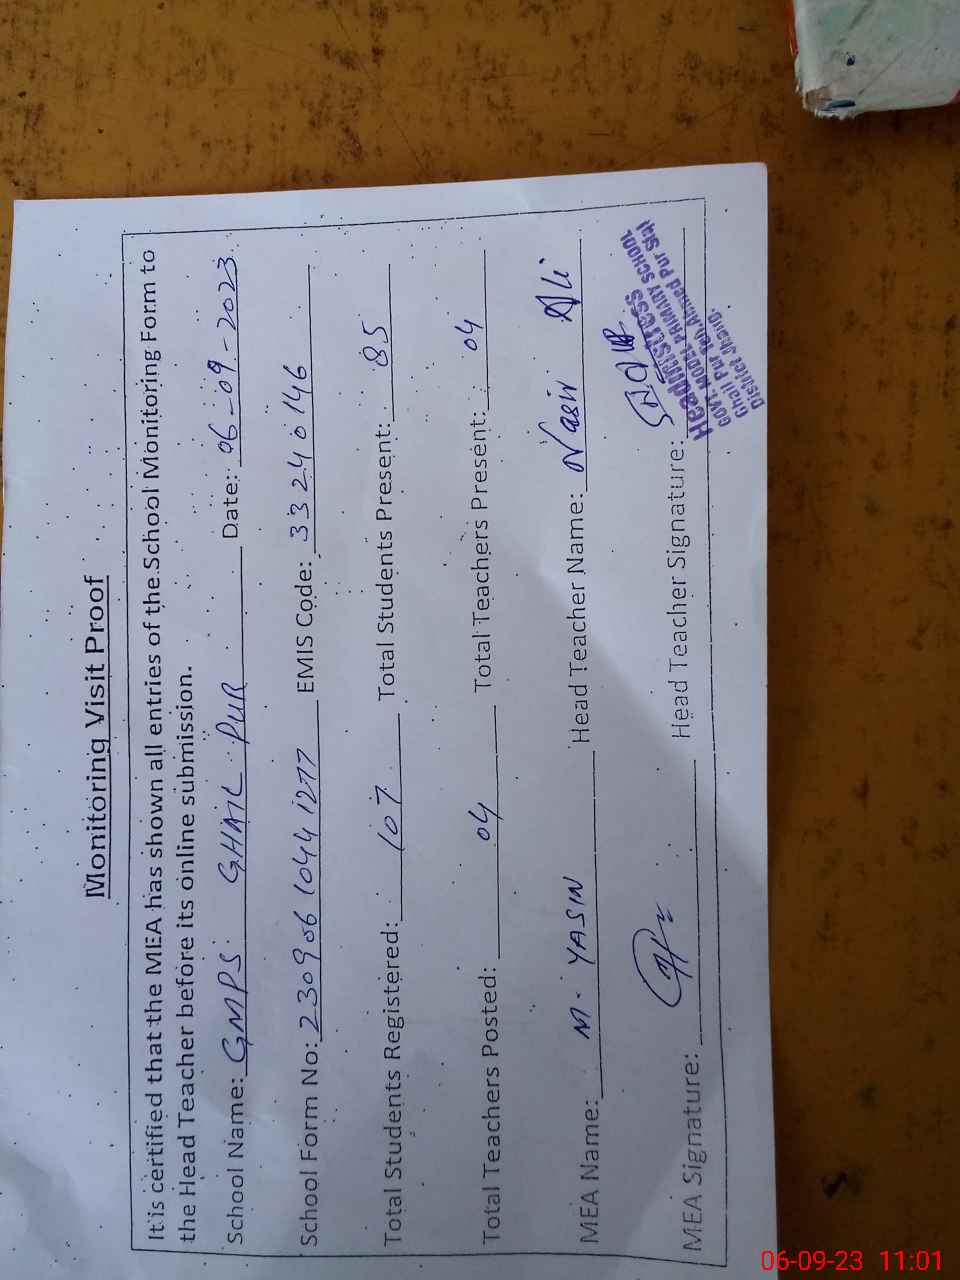 Monitoring Visit Proof
It is certified that the MEA has shown all entries of the School Monitoring Form to
the Head Teacher before its online submission.
School Name: GMPS: GHAIL PUR Date: 06-09-2023
School Form No: 2309061044 1277 EMIS Code: 33240146
Total Students Registered: 107 Total Students Present: 85
Total Teachers Posted: 04 Total Teachers Present: 04
MEA Name: M. YASIN Head Teacher Name: Nasir Ali
MEA Signature: Head Teacher Signature:
Headmistress
GOVT. MODEL PRIMARY SCHOOL
Ghail Pur Teh. Ahmed Pur Sial
District Jhang.
06-09-23 11:01